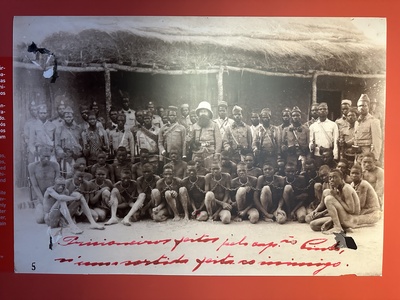 Prisioneiros feitos pelo cap.
n'uma sortida feita ao inimigo.
5